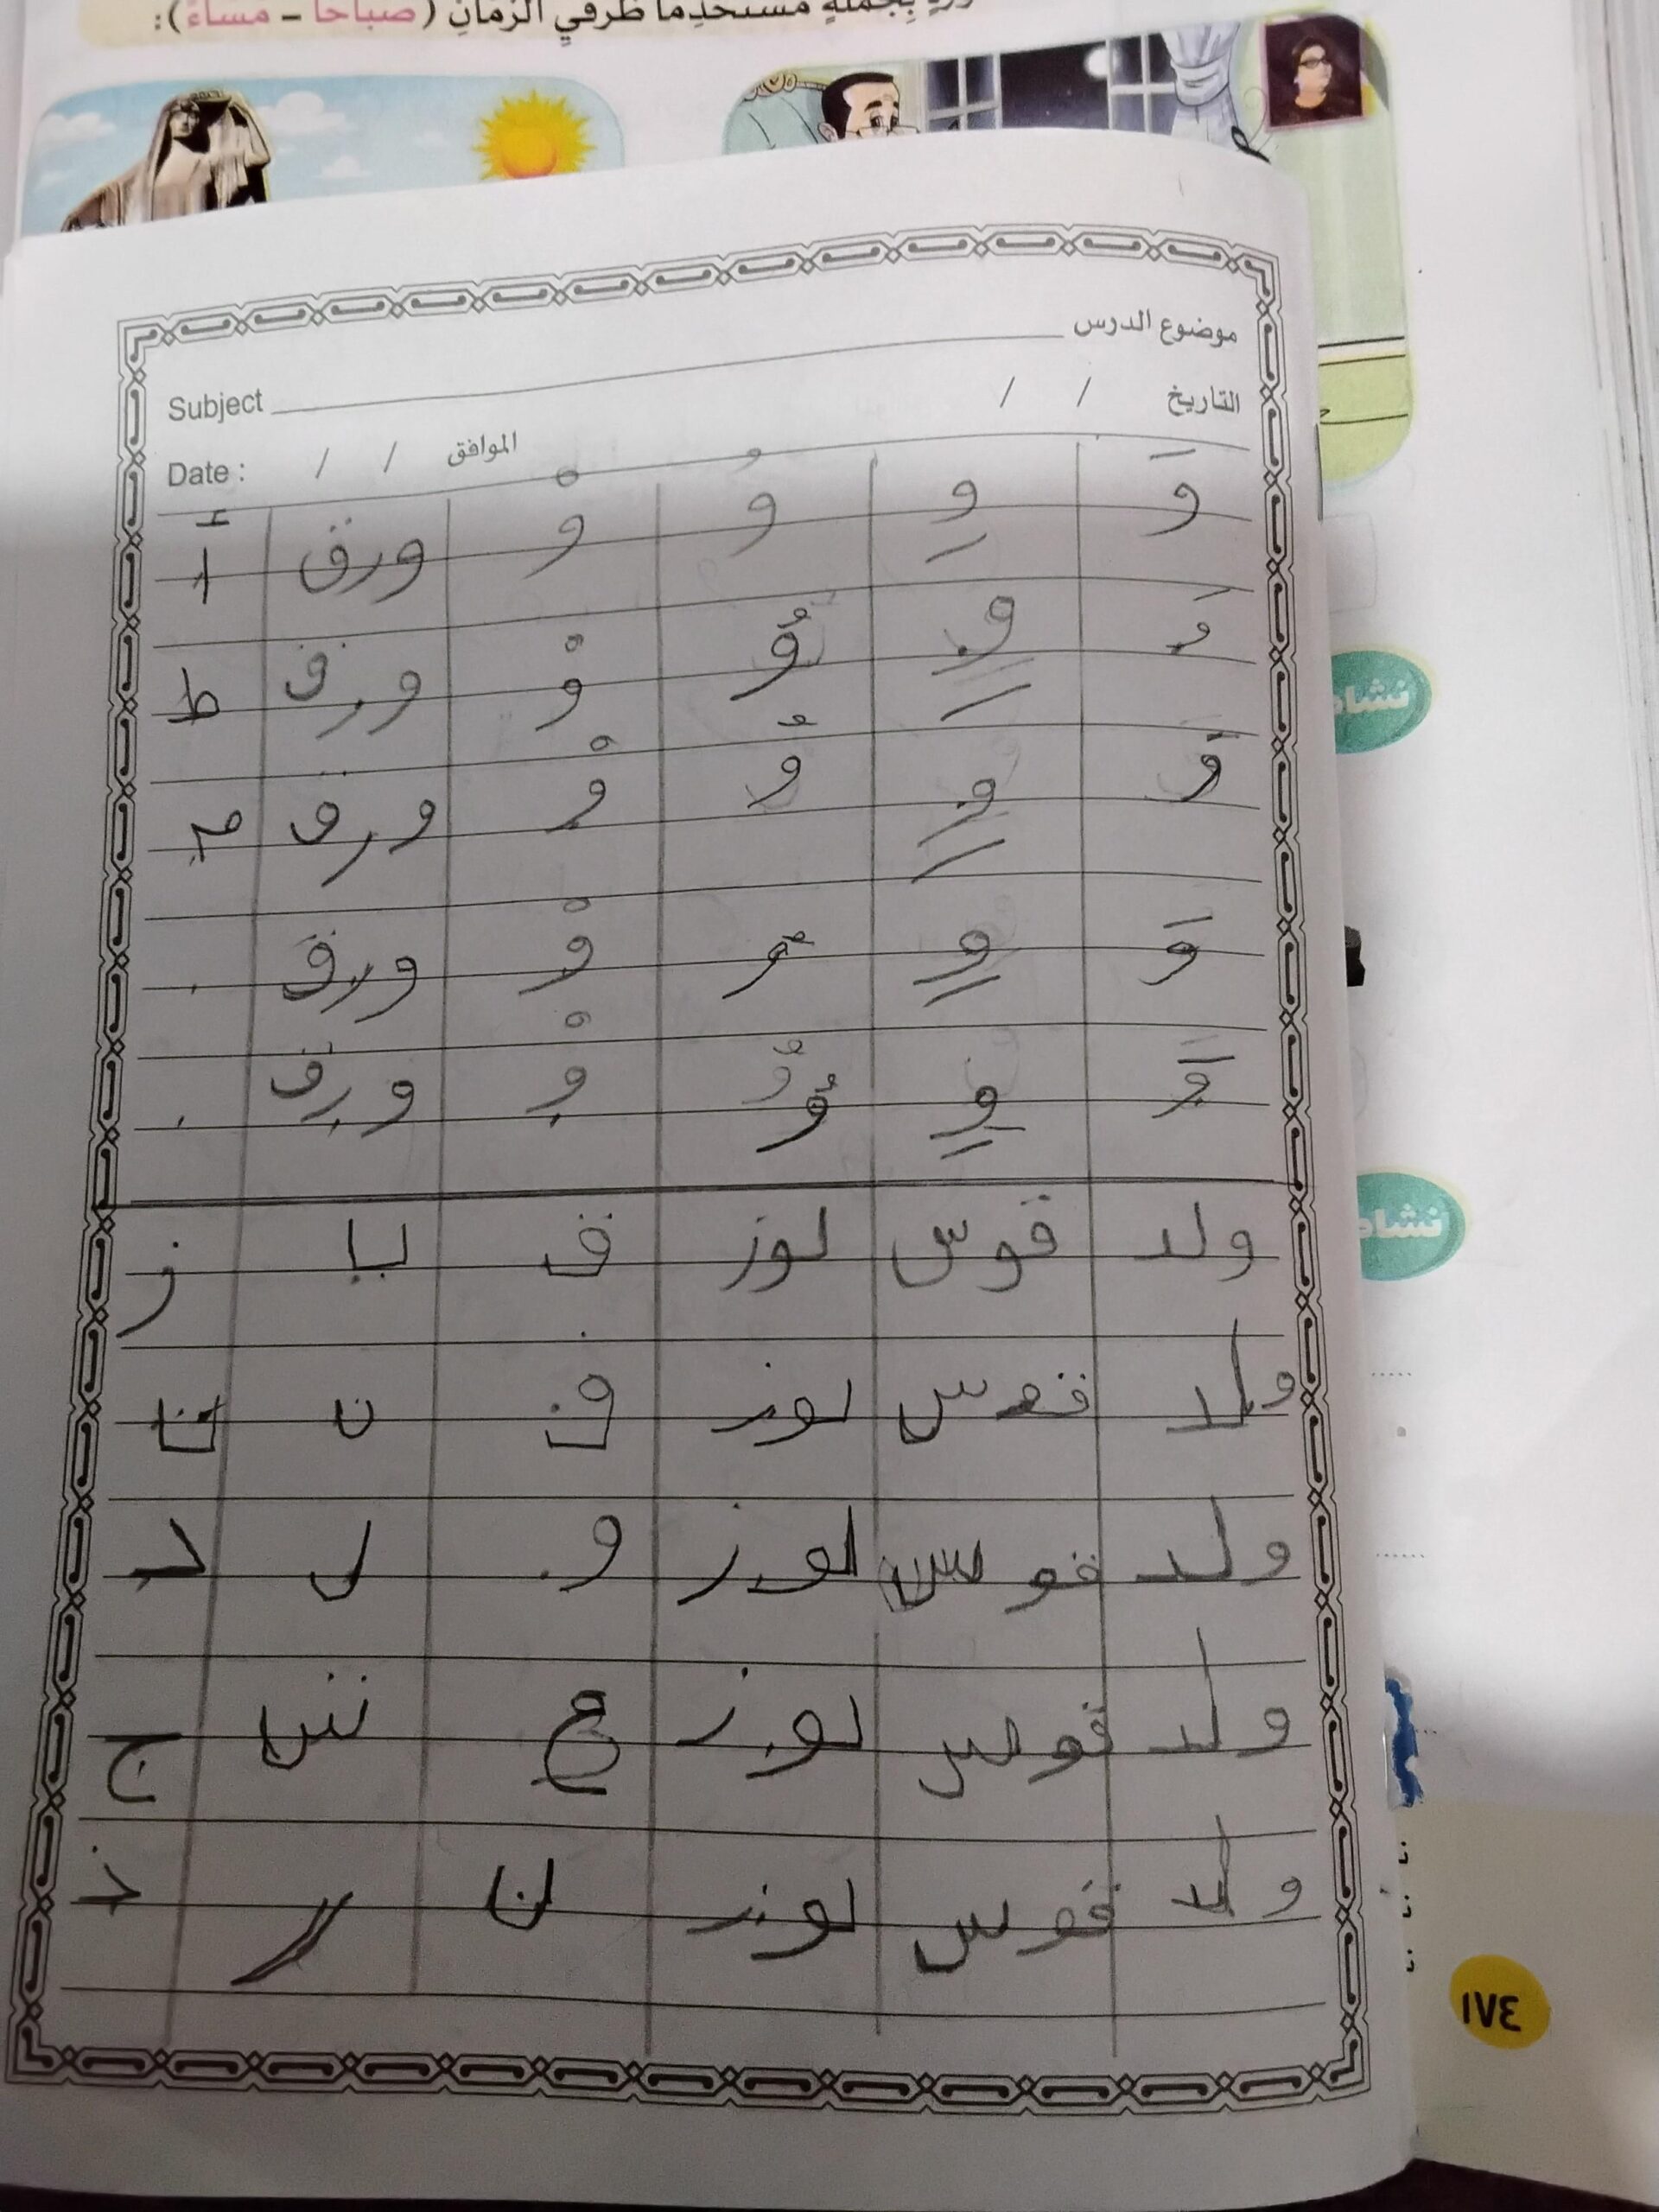 بجملة مستخدما ظرفي الزمان (صباحا - مساء):
موضوع الدرس
Subject
التاريخ / /
Date : / / الموافق
وَ وِ وُ وْ ورق أَ
وَ وِ وُ وْ ورق ط
وَ وِ وُ وْ ورق م
وَ وِ وُ وْ ورق
وَ وِ وُ وْ ورق
نشاط
ولد قوس لوز ق با ز
نشاط
ولد قوس لوز ق ن
ولد قوس لوز و ل د
ولد قوس لوز ج ش ج
ولد قوس لوز ن ر خ
١٧٤